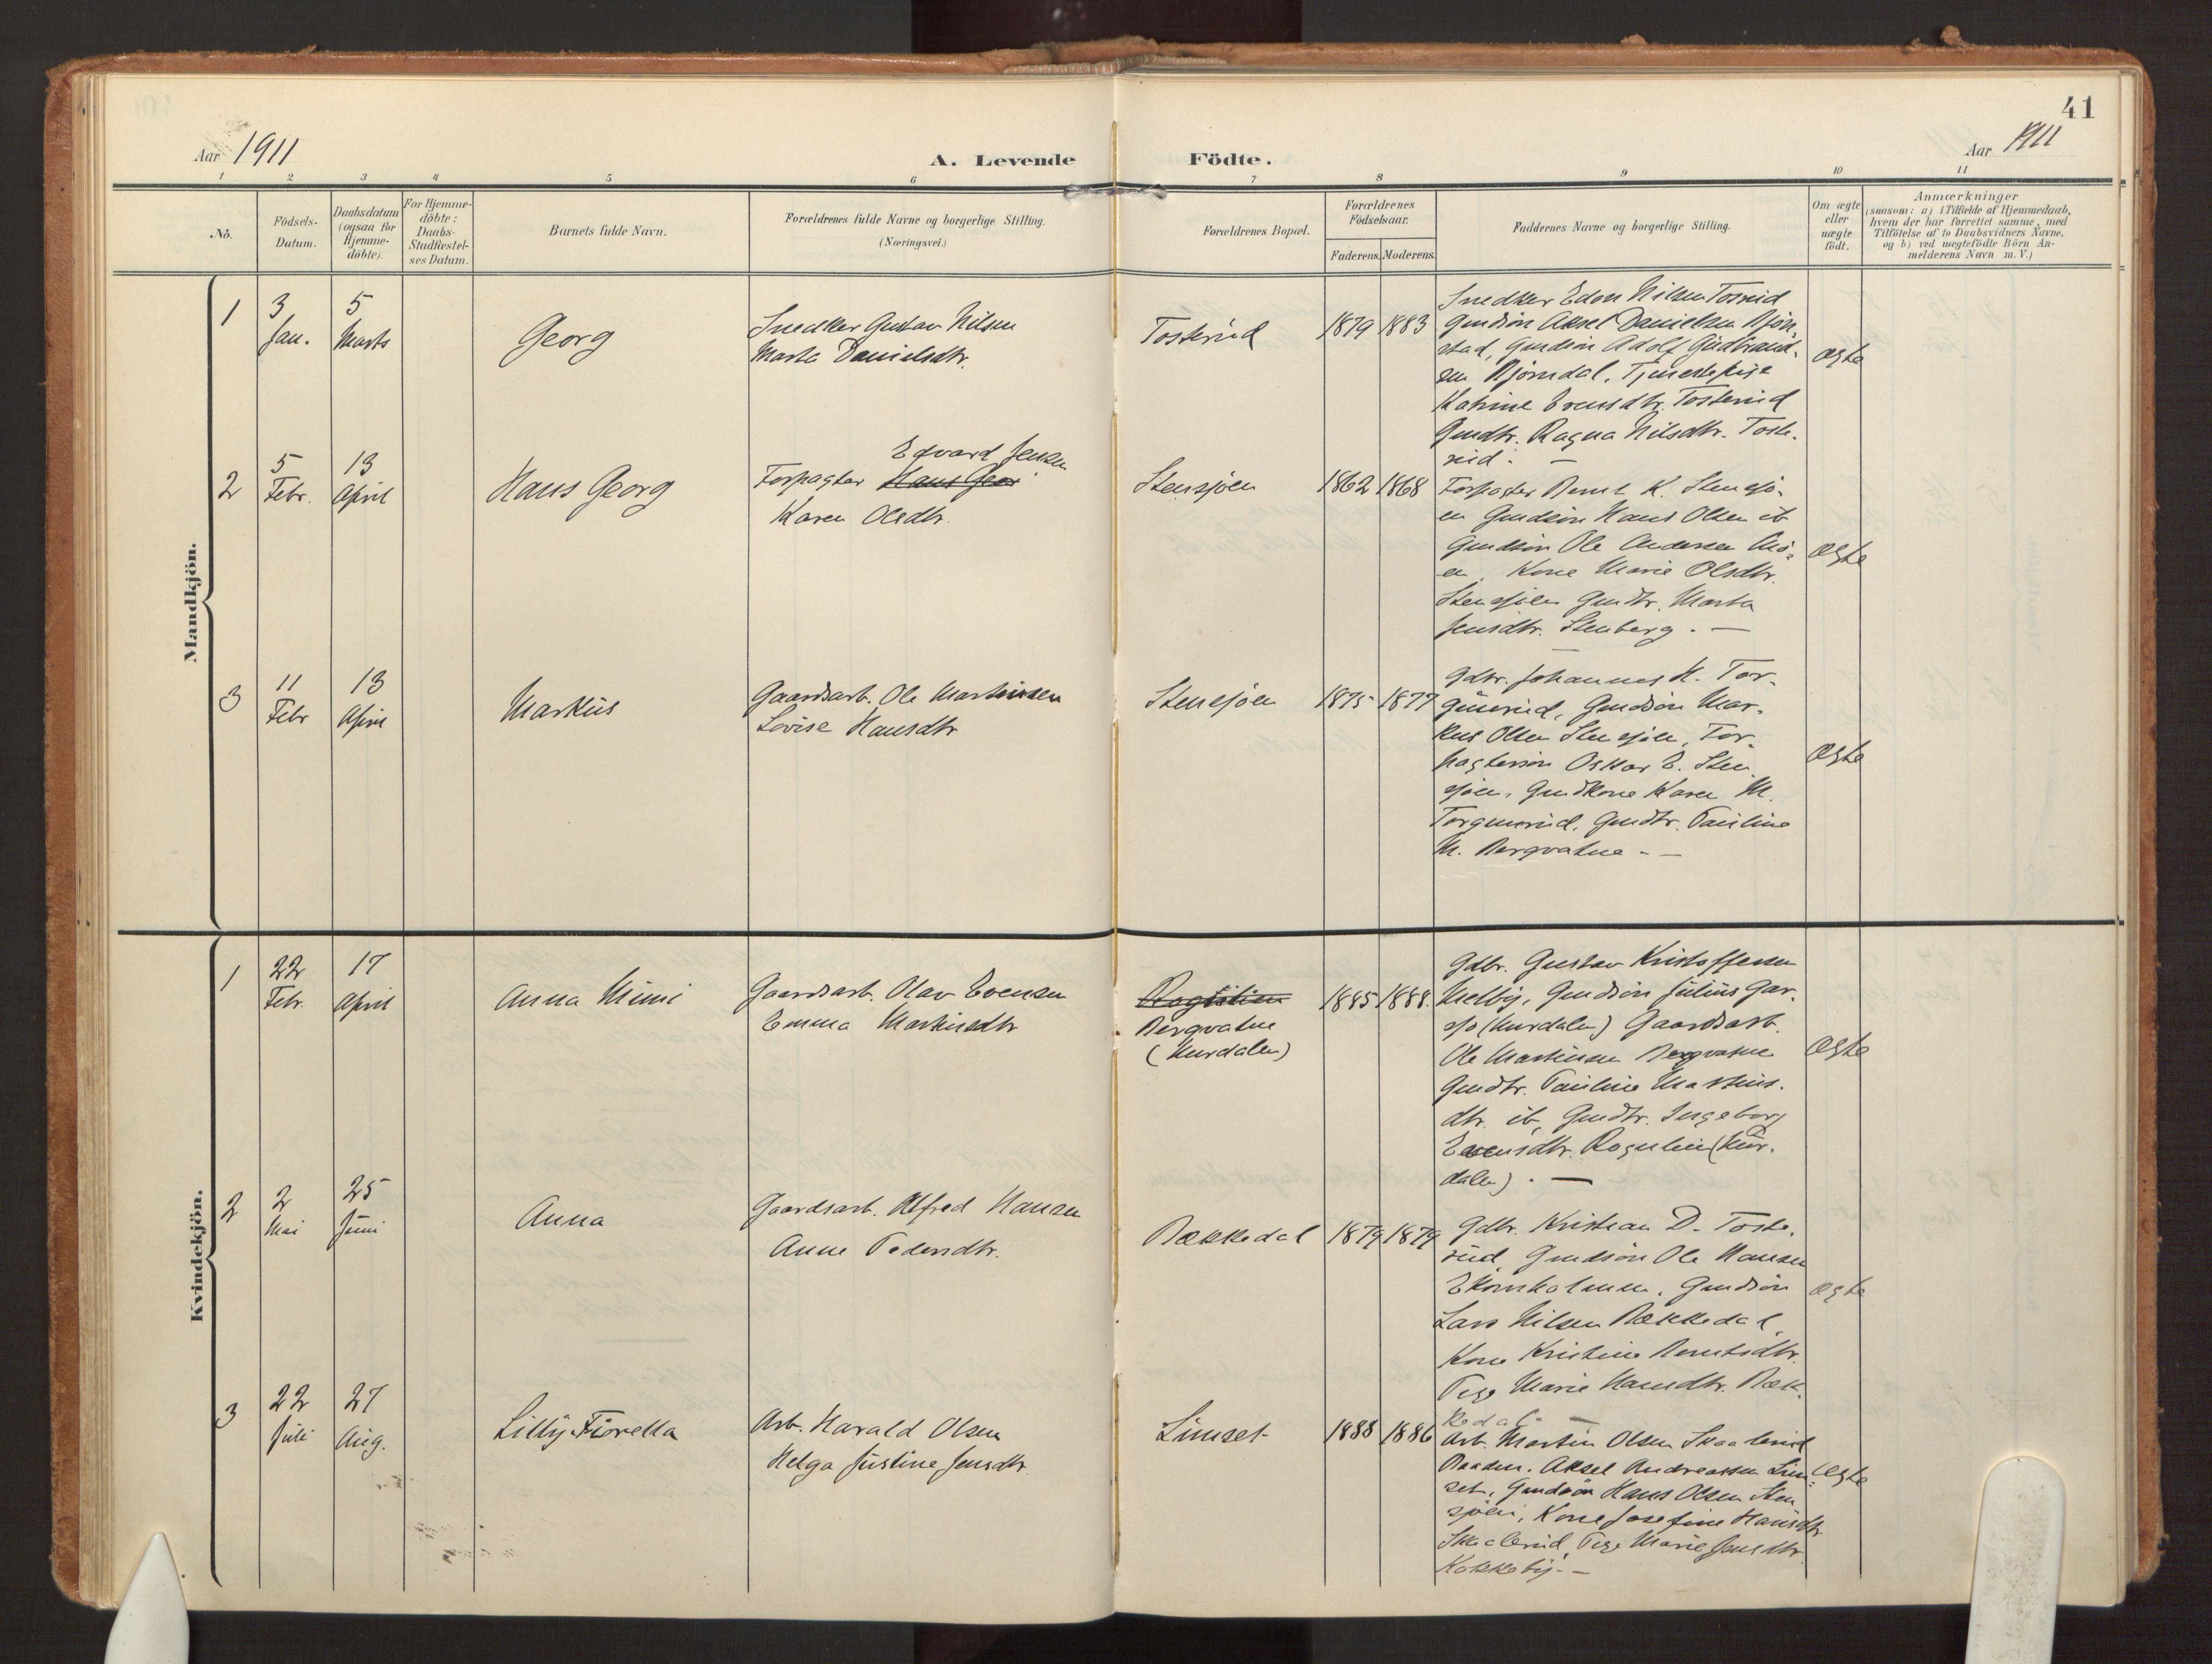 41
Aar 1911
A. Levende Födte.
Aar 1911
1 2 3 4 5 6 7 8 9 10 11
Nö.
Födsels-
Datum.
Daabsdatum
(ogsaa for
Hjemme-
döbte).
For Hjemme-
döbte:
Daabs-
Stadfæstel-
ses Datum.
Barnets fulde Navn.
Forældrenes fulde Navne og borgerlige Stilling.
(Næringsvei.)
Forældrenes Bopæl.
Forældrenes
Födselsaar.
Faderens. Moderens.
Faddernes Navne og borgerlige Stilling.
Om ægte
eller
uægte
födt.
Anmærkninger
(saasom: a) i Tilfælde af Hjemmedaab,
hvem der har forrettet samme, med
Tilföielse af to Daabsvidners Navne,
og b) ved uægtefödte Börn An-
melderens Navn m. V.)
Mandkjön.
1
3
Jan.
5
Marts
Georg
Snedker Gustav Nilsen
Marta Danielsdtr.
Tosterud
1879 1883
Snedker Edon Nilsen Tosrud
Gmdsön Aksel Danielsen Björn-
stad, Gmdsön Adolf Gudbrand-
sen Björndal, Tjenestepige
Katrine Evensdtr. Tosterud
Gmdtr. Ragna Nilsdtr. Toste-
rud. —
ægte
2
5
Febr.
13
April
Hans Georg
Edvard Jensen
Forpagter Hans Geor
Karen Olsdtr.
Stensjöen
1862 1868
Forpagter Bernt K. Stensjö-
en Gmdsön Hans Olsen ib
Gmdsön Ole Andersen Mo-
en, Kone Marie Olsdtr.
Stensjöen Gmdtr. Marta
Jensdtr. Stenberg. —
ægte
3
11
Febr
13
April
Markus
Gaardsarb. Ole Martinsen
Lovise Hansdtr
Stensjöen
1875 1877
Gdbr. Johannes H. Tor-
gunrud, Gmdsön Mar-
kus Olsen Stensjöen, For-
pagtersön Oskar E. Sten
sjöen, Gmdkone Karen M.
Torgunrud, Gmdtr. Pauline
M. Bergvatne - —
ægte
Kvindekjön.
1
22
Febr.
17
April
Anna Mimi
Gaardsarb. Olav Evensen
Emma Martinsdtr
Rognlien
Bergvatne
(Hurdalen)
1885 1888.
Gdbr. Gustav Kristoffersen
Melby, Gmdsön Julius Gar-
sjö (Hurdalen) Gaardsarb.
Ole Martinsen Bergvatne
Gmdtr. Pauline Martins-
dtr. ib, Gmdtr. Ingeborg
Evensdtr. Rognlien (Hur-
dalen). —
ægte
2
2
Mai
25
Juni
Anna
Gaardsarb. Alfred Hansen
Anne Pedersdtr.
Bækkedal
1879 1879
Gdbr. Kristian D. Toste-
rud, Gmdsön Ole Hansen
Ekornholmen, Gmdsön
Lars Nilsen Bækkedal,
Kone Kristine Berntsdtr.
Pige Marie Hansdtr. Bæk-
kedal. —
ægte
3
22
Juli
27
Aug.
Lilly Fiorella
Arb. Harald Olsen
Helga Justine Jensdtr
Limset
1888 1886
Arb. Martin Olsen Skaalerud
Aksel Andreassen Lim-
set, Gmdsön Hans Olsen Sten
sjöen, Kone Josefine Hansdtr
Skaalerud, Pige Marie Jensdtr
Kokkeby. —
ægte